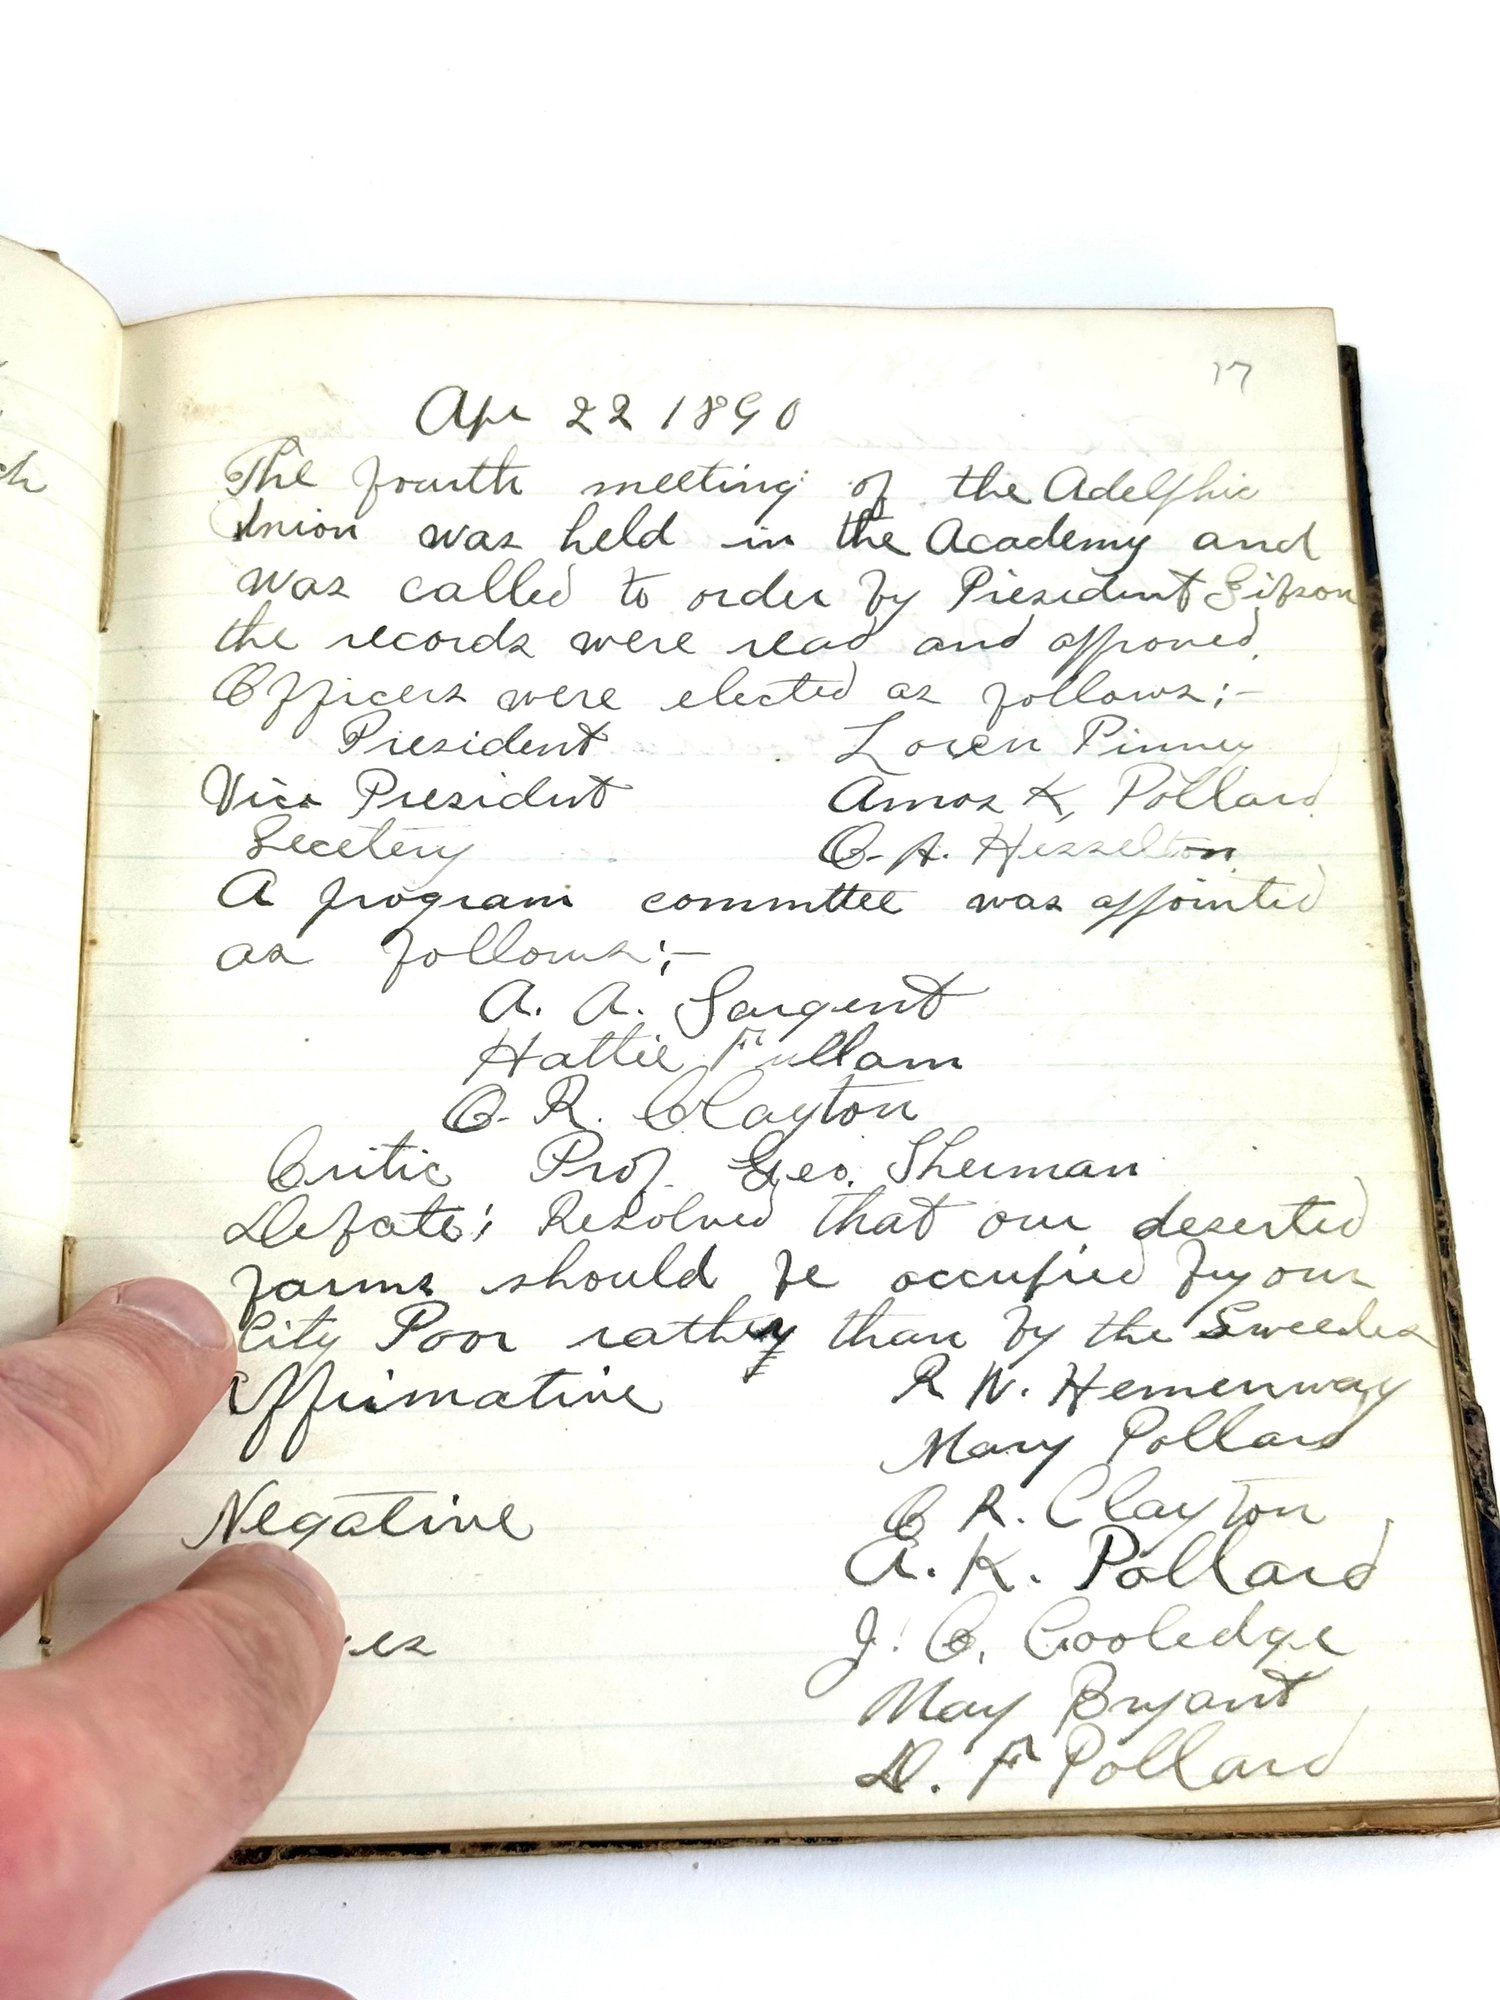 17
Apr 22 1890
The fourth meeting of the Adelphic
Union was held in the Academy and
was called to order by President Gibson
the records were read and approved.
Officers were elected as follows;-
President Loren Pinney
Vice President Amos K, Pollard
Secetery O. A. Hesselton.
A program committee was appointed
as follows;-
A. A. Sargent
Hattie Fullam
O. R. Clayton
Critic Prof. Geo. Sherman
Debate; Resolved that our deserted
farms should be occupied by our
City Poor rather than by the Sweedes
Affirmative R W. Hemenway
Mary Pollard
Negative O R. Clayton
A. K. Pollard
J. C. Cooledge
May Bryant
D. F Pollard